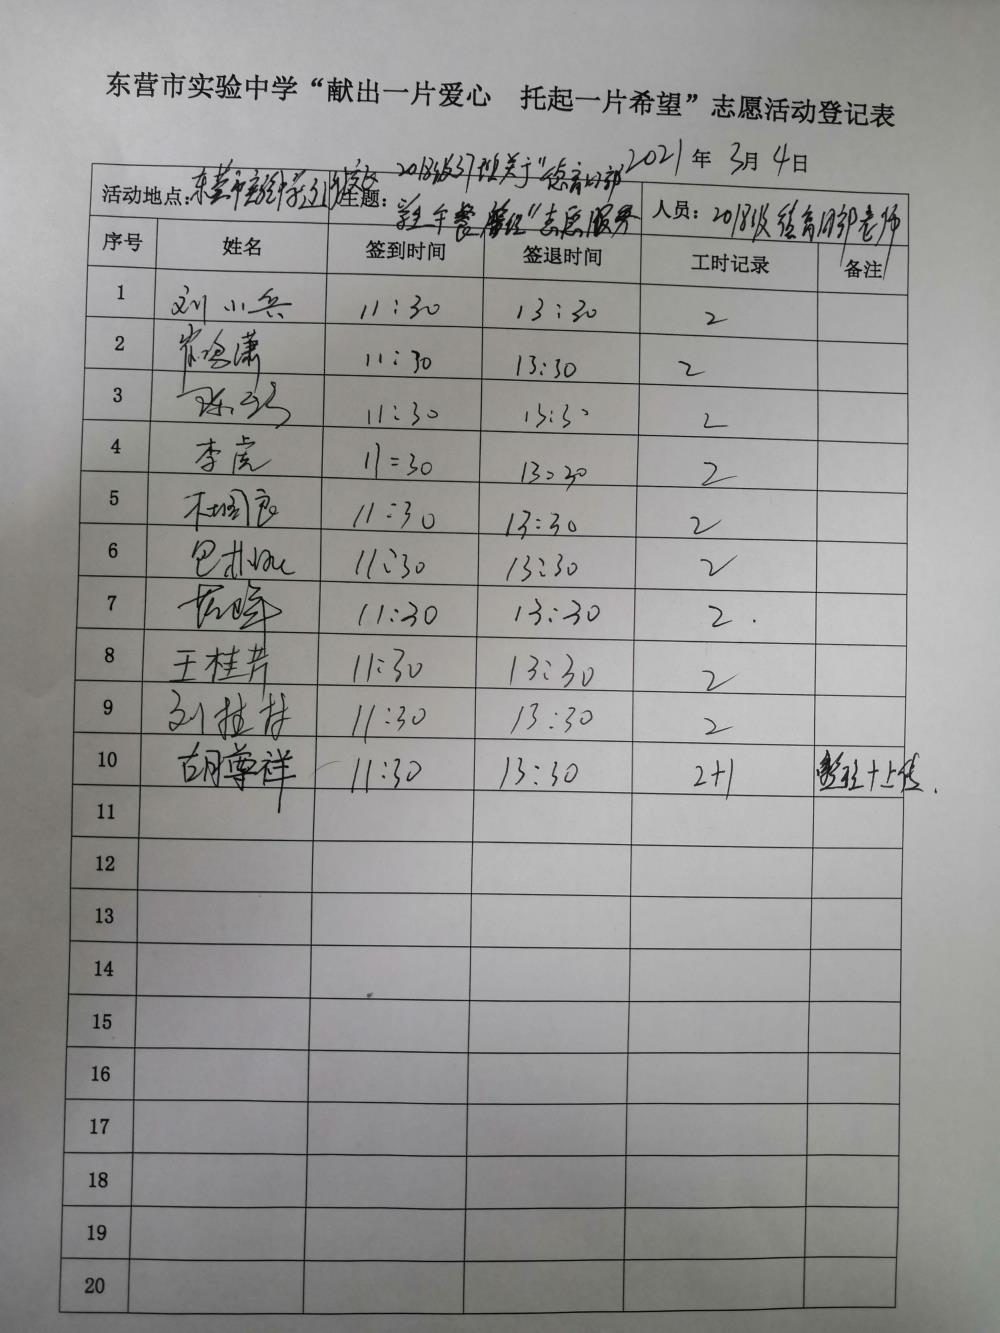 东营市实验中学“献出一片爱心 托起一片希望”志愿活动登记表
2021年3月4日
活动地点：东营市实验中学 主题：2018级 关于“德育干部
学生午餐管理”志愿服务 人员：2018级德育干部老师
序号 姓名 签到时间 签退时间 工时记录 备注
1 刘小兵 11:30 13:30 2
2 潇 11:30 13:30 2
3 陈 11:30 13:30 2
4 李虎 11:30 13:30 2
5 杜国良 11:30 13:30 2
6 巴 11:30 13:30 2
7 11:30 13:30 2
8 王桂芹 11:30 13:30 2
9 刘桂林 11:30 13:30 2
10 胡尊祥 11:30 13:30 2+1 整理+上传.
11
12
13
14
15
16
17
18
19
20